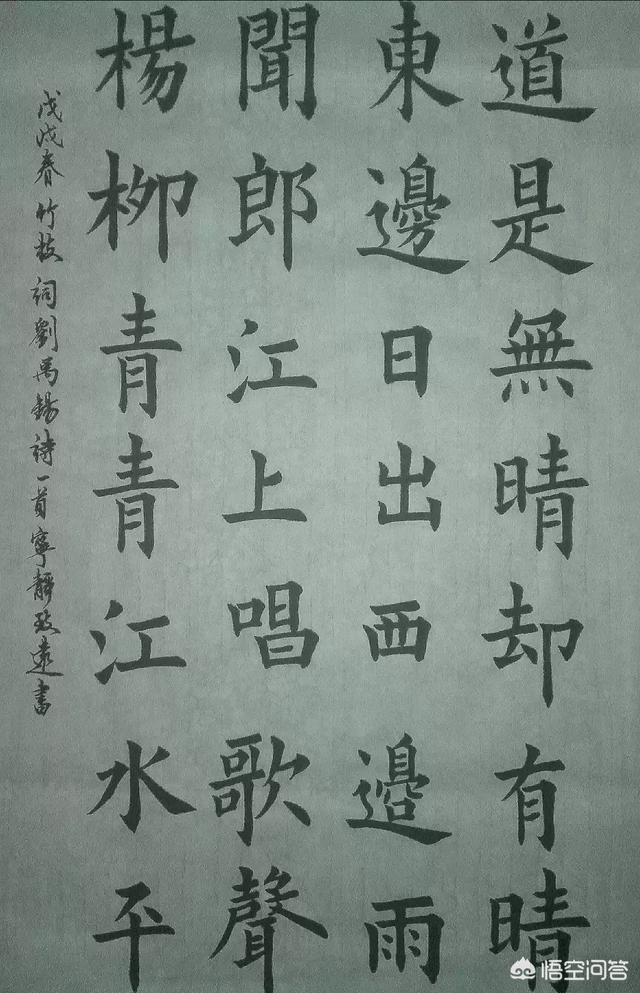 楊柳青青江水平
聞郎江上唱歌聲
東邊日出西邊雨
道是無晴却有晴
戊戌春竹枝詞劉禹錫詩一首寧靜致遠書
悟空问答